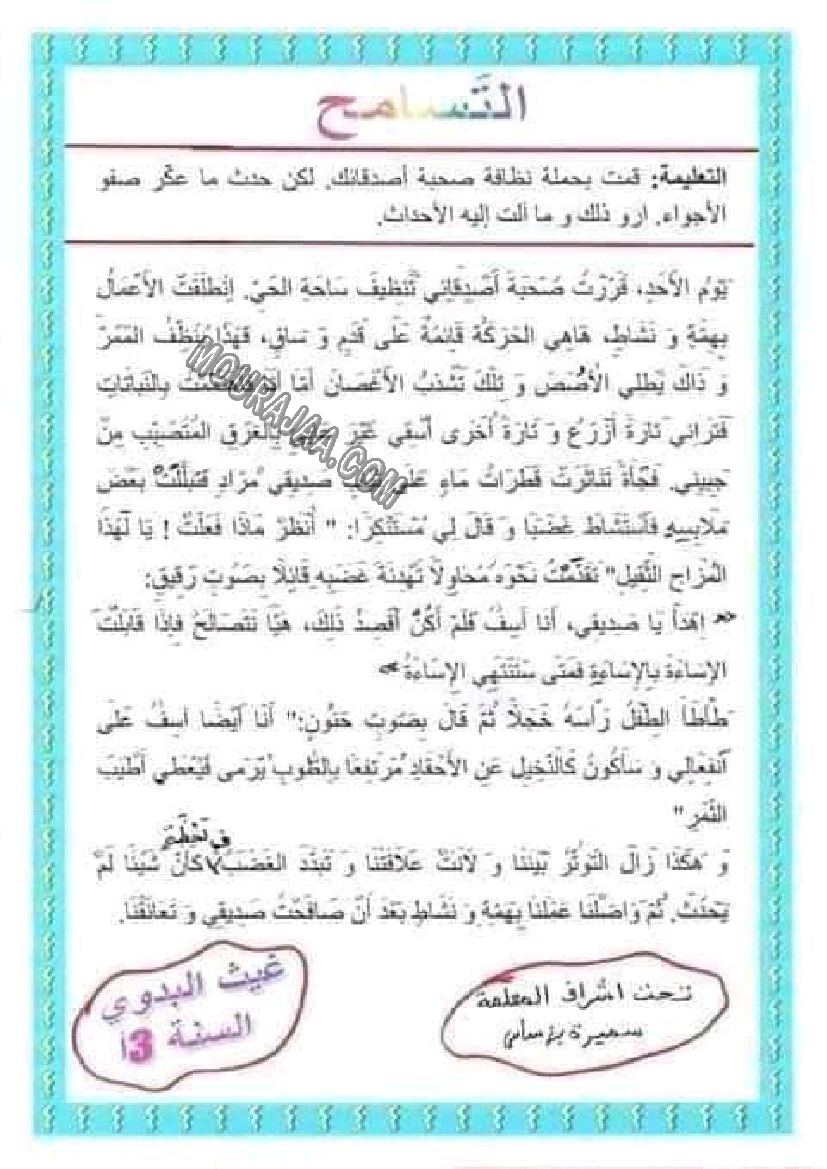 التَسامح
التعليمة: قمت بحملة نظافة صحبة أصدقائك. لكن حدث ما عكّر صفو
الأجواء. ارو ذلك و ما آلت إليه الأحداث.
يَوْمُ الأَحَدِ، قَرَّرْتُ صُحْبَةَ أَصْدِقَائِي تَنْظِيفَ سَاحَةِ الحَيِّ. اِنْطَلَقَتْ الأَعْمَالُ
بِهِمَّةٍ وَ نَشَاطٍ، هَاهِي الحَرَكَةُ قَائِمَةٌ عَلَى قَدَمٍ وَ سَاقٍ، فَهَذَا يُنَظِّفُ المَمَرَّ
وَ ذَاكَ يَطْلِي الأُصُصَ وَ تِلْكَ تُشَذِّبُ الأَغْصَانَ أَمَّا بِالنَّبَاتَاتِ
فَتَرَانِي تَارَةً أَزْرَعُ وَ تَارَةً أُخْرَى أَسْقِي غَيْرَ بِالعَرَقِ المُتَصَبِّبِ مِنْ
جَبِينِي. فَجْأَةً تَنَاثَرَتْ قَطَرَاتُ مَاءٍ عَلَى صَدِيقِي مُرَادٍ فَتَبَلَّلَتْ بَعْضُ
مَلَابِسِهِ فَاسْتَشَاطَ غَضَبًا وَ قَالَ لِي مُسْتَنْكِرًا: " أُنْظُرْ مَاذَا فَعَلْتَ ! يَا لَهَذَا
المُزَاحِ الثَّقِيلِ" تَقَدَّمْتُ نَحْوَهُ مُحَاوِلاً تَهْدِئَةَ غَضَبِهِ قَائِلاً بِصَوْتٍ رَقِيقٍ:
« اِهْدَأْ يَا صَدِيقِي، أَنَا آسِفٌ فَلَمْ أَكُنْ أَقْصِدُ ذَلِكَ، هَيَّا نَتَصَالَحُ فَإِذَا قَابَلْتَ
الإِسَاءَةَ بِالإِسَاءَةِ فَمَتَى سَتَنْتَهِي الإِسَاءَةُ »
طَأْطَأَ الطِّفْلُ رَأْسَهُ خَجَلاً ثُمَّ قَالَ بِصَوْتٍ حَنُونٍ:" أَنَا أَيْضًا آسِفٌ عَلَى
انْفِعَالِي وَ سَأَكُونُ كَالنَّخِيلِ عَنِ الأَحْقَادِ مُرْتَفِعًا بِالطُّوبِ يُرْمَى فَيُعْطِي أَطْيَبَ
الثَّمَرِ "
وَ هَكَذَا زَالَ التَّوَتُّرُ بَيْنَنَا وَ لَانَتْ عَلَاقَتُنَا وَ تَبَدَّدَ الغَضَبُ كَأَنَّ شَيْئًا لَمْ
يَحْدُثْ. ثُمَّ وَاصَلْنَا عَمَلَنَا بِهِمَّةٍ وَ نَشَاطٍ بَعْدَ أَنْ صَافَحْتُ صَدِيقِي وَ تَعَانَقْنَا.
تحت اشراف المعلمة
سميرة
غيث البدوي
السنة 3ا
MOURAJAA.COM